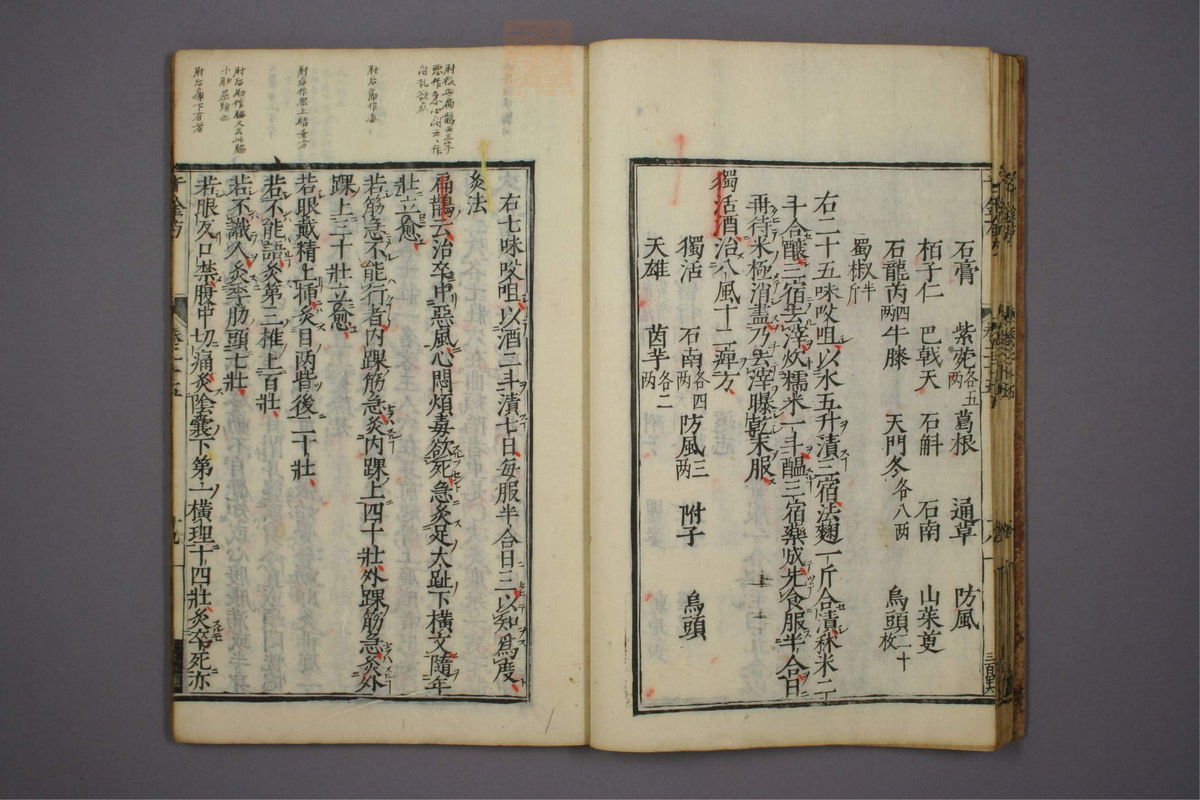 石膏 紫菀各五两 葛根 通草 防風
栢子仁 巴戟天 石斛 石南 山茱萸
石龍芮 牛膝四两 天門冬各八两 烏頭二十枚
蜀椒半斤
右二十五味㕮咀以水五升漬三宿法麴一斤合漬秫米二
斗合釀三宿去滓炊糯米一斗醖三宿藥成先食服半合日
再待米極消盡乃去滓曝乾末服
獨活酒治八風十二痺方
獨活 石南各四两 防風三两 附子 烏頭
天雄 茵芋各二两
右七味㕮咀以酒二斗漬七日每服半合日三以知爲度
灸法
扁鵲云治卒中惡風心悶煩毒欲死急灸足太趾下橫文隨年
壯立愈
若筋急不能行者內踝筋急灸內踝上四十壯外踝筋急灸外
踝上三十壯立愈
若眼戴精上插灸目两眥後二十壯
若不能語灸第三椎上百壯
若不識人灸季肋頭七壯
若眼反口禁腹中切痛灸陰囊下第一橫理十四壯灸卒死亦